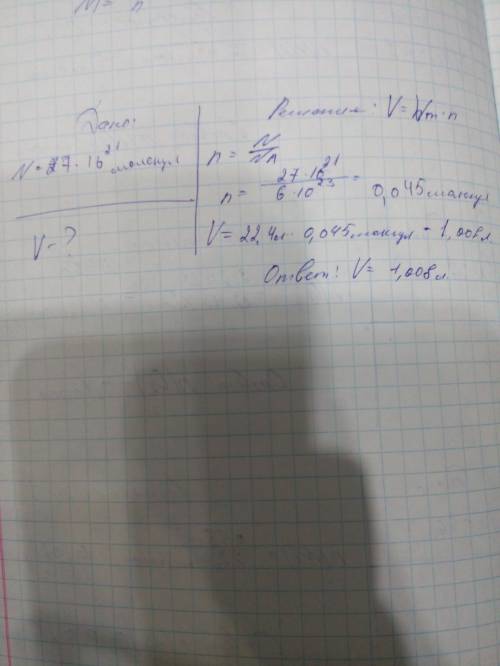 M = n
Дано:
N = 27 · 10²¹ молекул
V - ?
Решение: V = Vm · n
n = N/NA
n = 27 · 10²¹ / 6 · 10²³ = 0,045 молекул
V = 22,4л · 0,045 молекул = 1,008л
Ответ: V = 1,008л